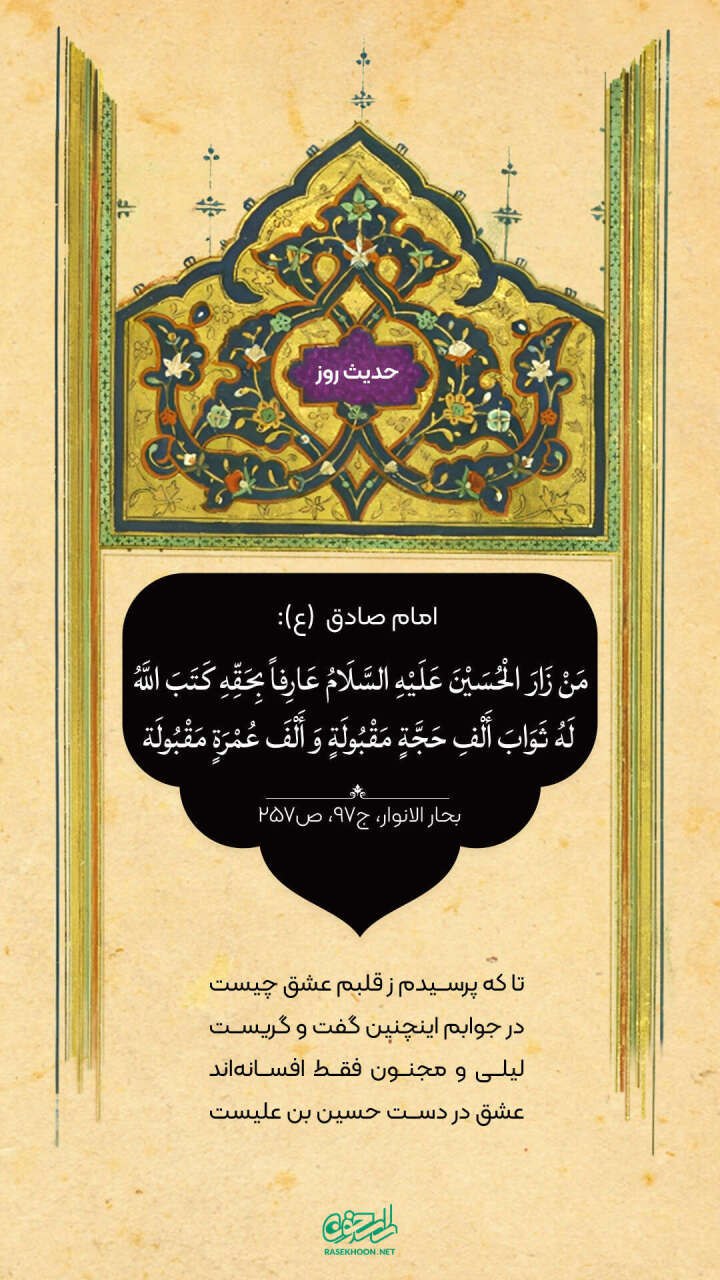 حدیث روز
امام صادق (ع):
مَنْ زَارَ الْحُسَیْنَ عَلَیْهِ السَّلَامُ عَارِفاً بِحَقِّهِ کَتَبَ اللَّهُ
لَهُ ثَوَابَ أَلْفِ حَجَّةٍ مَقْبُولَةٍ وَ أَلْفَ عُمْرَةٍ مَقْبُولَة
بحار الانوار، ج۹۷، ص۲۵۷
تا که پرسیدم ز قلبم عشق چیست
در جوابم اینچنین گفت و گریست
لیلی و مجنون فقط افسانه‌اند
عشق در دست حسین بن علیست
راسخون
RASEKHOON.NET